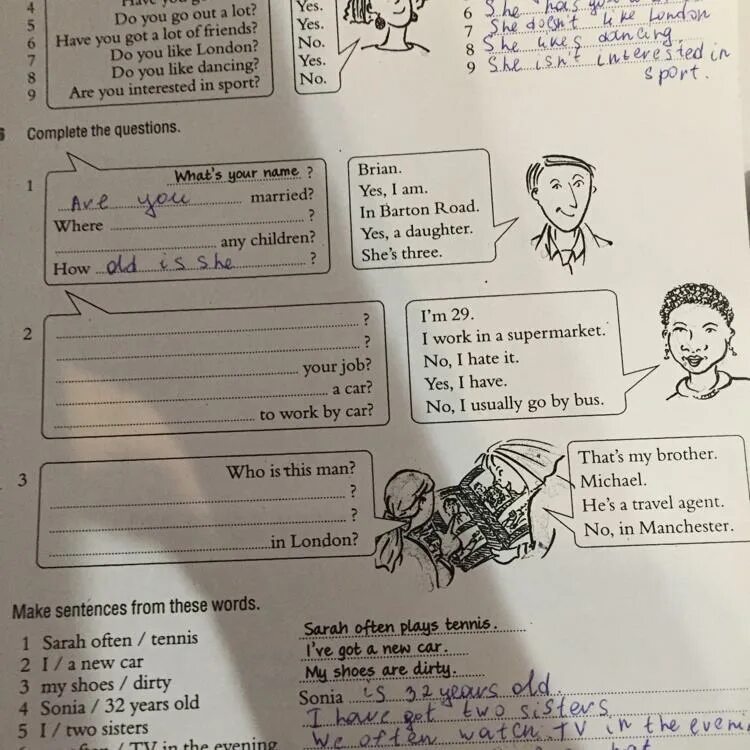 4
5 Do you go out a lot?
6 Have you got a lot of friends?
7 Do you like London?
8 Do you like dancing?
9 Are you interested in sport?
Yes.
Yes.
No.
Yes.
No.
6 She has
7 She doesn't like London
8 She likes dancing.
9 She isn't interested in
sport.
Complete the questions.
1
What's your name ?
Are you married?
Where ?
any children?
How old is she ?
Brian.
Yes, I am.
In Barton Road.
Yes, a daughter.
She's three.
2
?
?
your job?
a car?
to work by car?
I'm 29.
I work in a supermarket.
No, I hate it.
Yes, I have.
No, I usually go by bus.
3
Who is this man?
?
?
in London?
That's my brother.
Michael.
He's a travel agent.
No, in Manchester.
Make sentences from these words.
1 Sarah often / tennis
2 I / a new car
3 my shoes / dirty
4 Sonia / 32 years old
5 I / two sisters
/ TV in the evening
Sarah often plays tennis.
I've got a new car.
My shoes are dirty.
Sonia is 32 years old.
I have got two sisters
We often watch TV in the